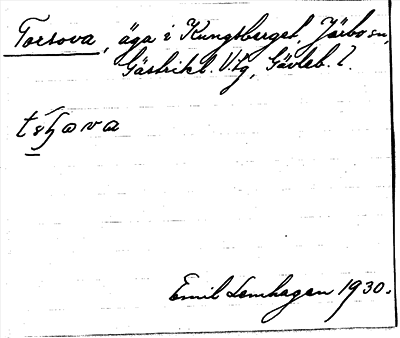 Torsova, äga i Kungsberget, Järbo sn,
Gästrikl. V.tg, Gävleb. l.
Emil Lemhagen 1930.